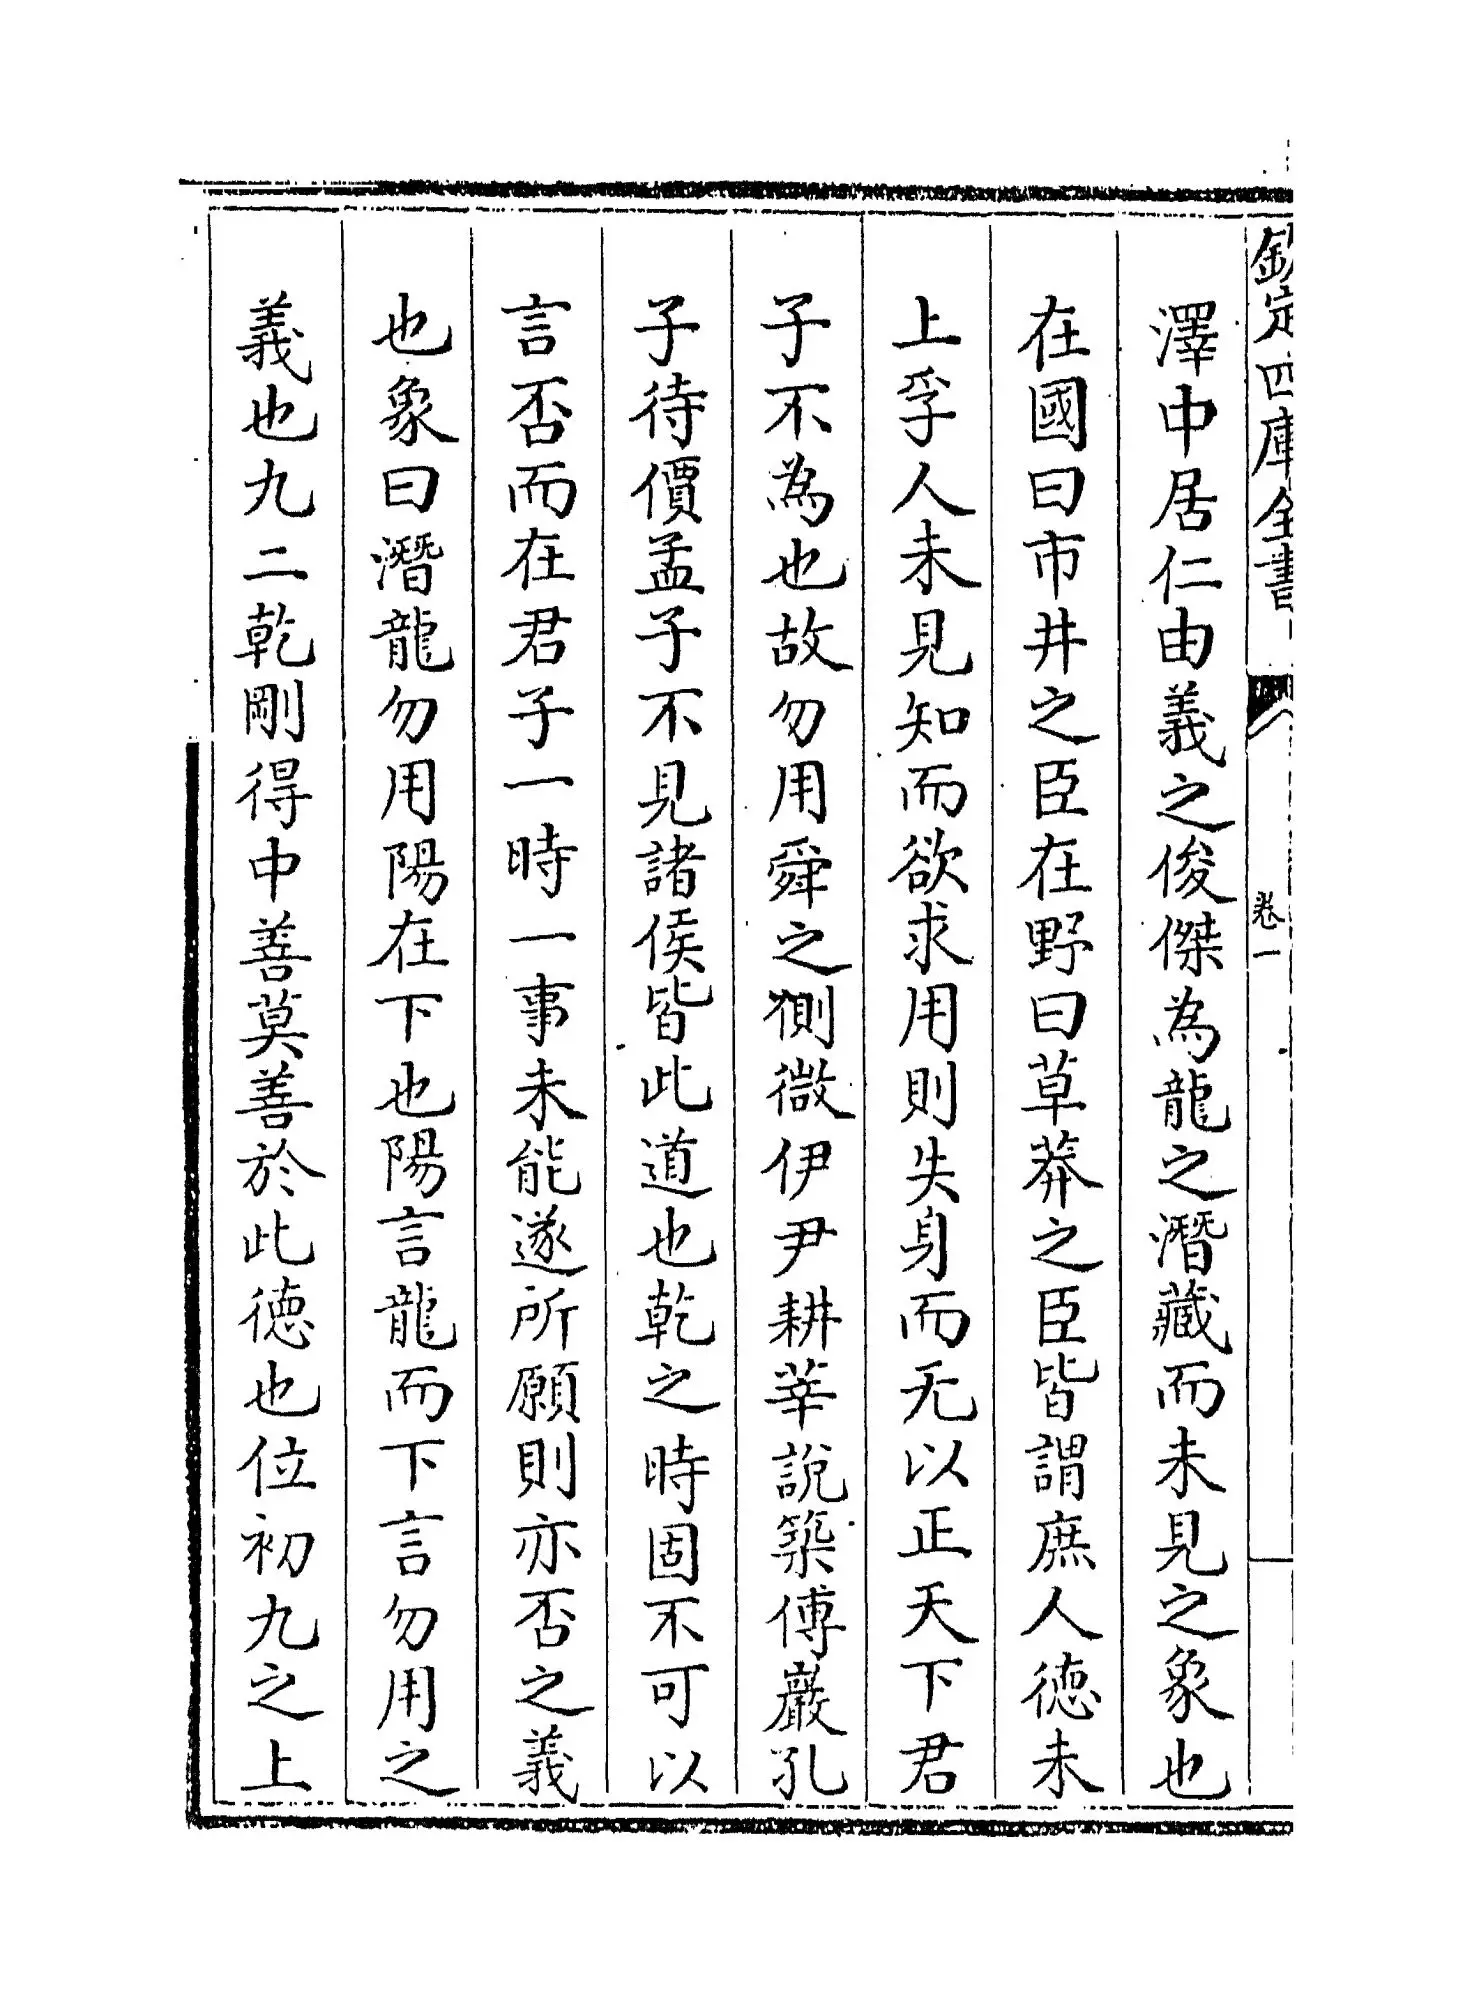 欽定四庫全書
卷一
澤中居仁由義之俊傑為龍之潛藏而未見之象也
在國曰市井之臣在野曰草莽之臣皆謂庶人德未
上孚人未見知而欲求用則失身而无以正天下君
子不為也故勿用舜之側微伊尹耕莘說築傅巖孔
子待價孟子不見諸侯皆此道也乾之時固不可以
言否而在君子一時一事未能遂所願則亦否之義
也象曰潛龍勿用陽在下也陽言龍而下言勿用之
義也九二乾剛得中善莫善於此德也位初九之上